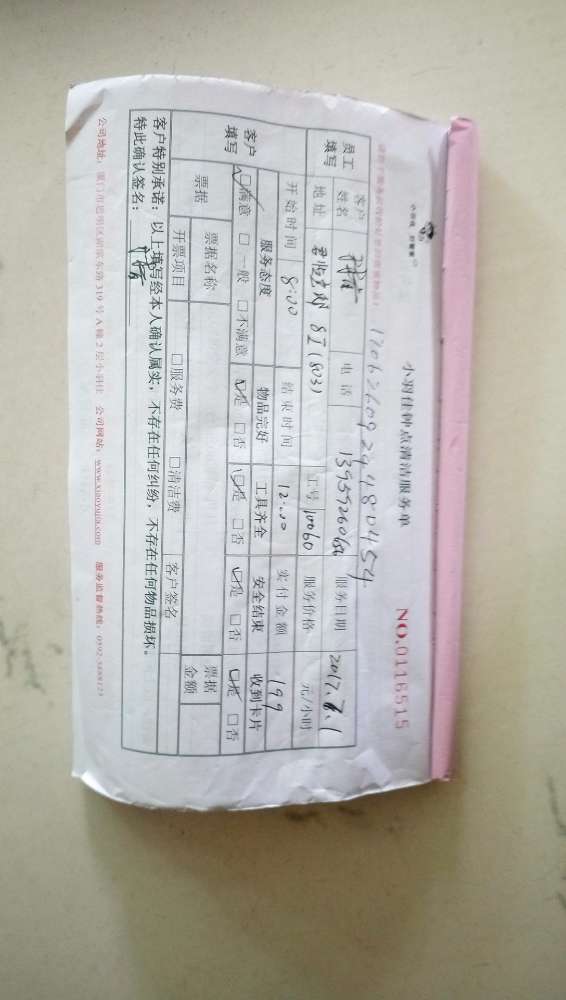 小羽佳钟点清洁服务单
NO.0116515
170626092948045 4
员工填写 客户姓名 电话 服务日期 2017.7.1
地址 8I(803) 工号 10060 服务价格 元/小时
开始时间 8:00 结束时间 12:00 实付金额 199
客户填写 服务态度 物品完好 工具齐全 安全结束 收到卡片
☑满意 □一般 □不满意 ☑是 □否 ☑是 □否 ☑是 □否 ☑是 □否
票据 票据名称 票据金额
开票项目 □服务费 □清洁费 客户签名
客户特别承诺：以上填写经本人确认属实，不存在任何纠纷，不存在任何物品损坏。
特此确认签名：
公司地址：厦门市思明区湖滨东路319号A幢2层小羽佳 公司网站：www.xiaoyujia.com 服务监督热线：0592-5888123